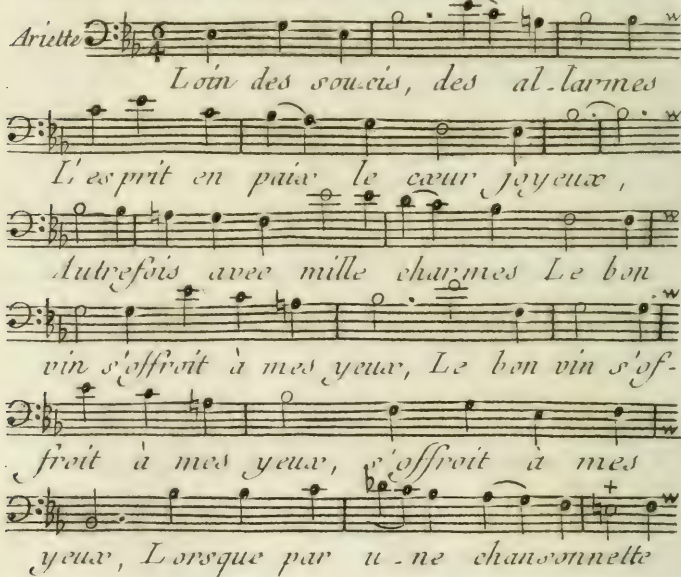 Ariette
6
4
Loin des soucis, des al-larmes
L'esprit en paix le cœur joyeux,
Autrefois avec mille charmes Le bon
vin s'offroit à mes yeux, Le bon vin s'of-
froit à mes yeux, s'offroit à mes
yeux, Lorsque par u-ne chansonnette